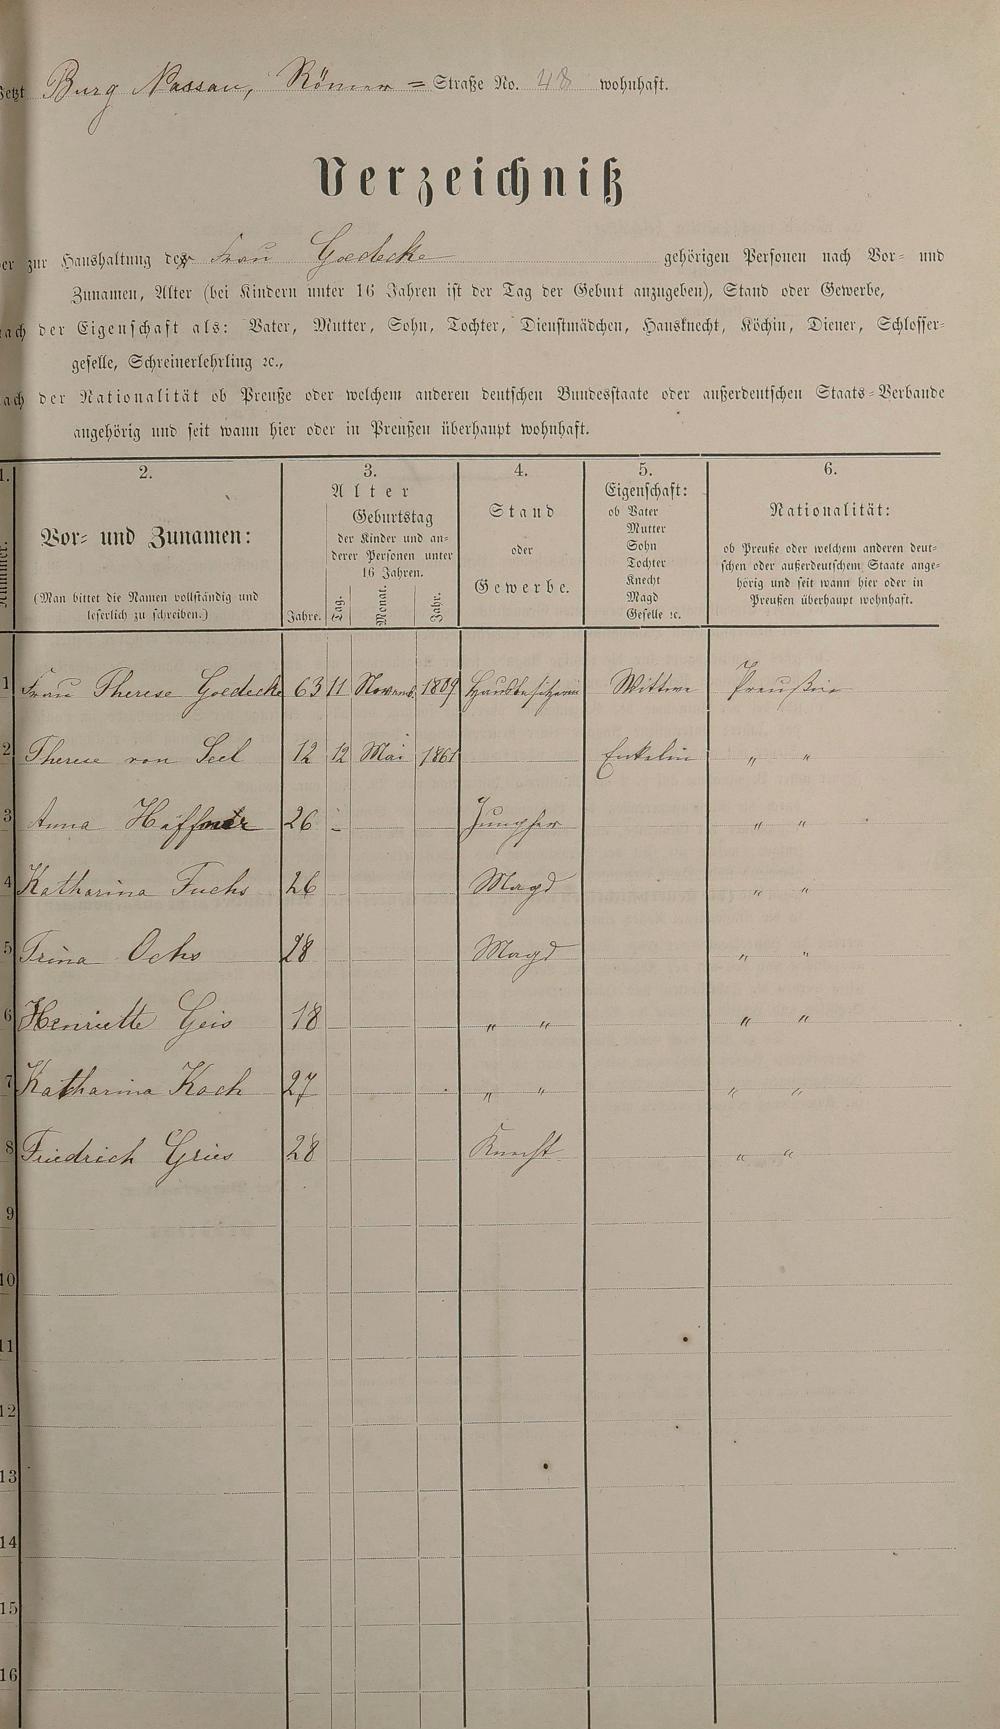 Jetzt Burg Nassau, Römer = Straße No. 48 wohnhaft.
Verzeichniß
der zur Haushaltung der Frau Goedecke gehörigen Personen nach Vor- und
Zunamen, Alter (bei Kindern unter 16 Jahren ist der Tag der Geburt anzugeben), Stand oder Gewerbe,
nach der Eigenschaft als: Vater, Mutter, Sohn, Tochter, Dienstmädchen, Hausknecht, Köchin, Diener, Schlosser-
geselle, Schreinerlehrling ꝛc.,
nach der Nationalität ob Preuße oder welchem anderen deutschen Bundesstaate oder außerdeutschen Staats-Verbande
angehörig und seit wann hier oder in Preußen überhaupt wohnhaft.
1. 2. 3. 4. 5. 6.
Nummer.
Vor- und Zunamen:
(Man bittet die Namen vollständig und
leserlich zu schreiben.)
Alter
Jahre.
Geburtstag
der Kinder und an-
derer Personen unter
16 Jahren.
Tag. Monat. Jahr.
Stand
oder
Gewerbe.
Eigenschaft:
ob Vater
Mutter
Sohn
Tochter
Knecht
Magd
Geselle ꝛc.
Nationalität:
ob Preuße oder welchem anderen deut-
schen oder außerdeutschem Staate ange-
hörig und seit wann hier oder in
Preußen überhaupt wohnhaft.
1 Frau Therese Goedecke 63 11 Novemb. 1809 Hausbesitzerin Wittwe Preußin
2 Therese von Seel 12 12 Mai 1861 Enkelin " "
3 Anna Häffner 26 - Jungfer " "
4 Katharina Fuchs 26 Magd " "
5 Trina Ochs 28 Magd " "
6 Henriette Geis 18 " " " "
7 Katharina Koch 27 " " " "
8 Friedrich Gries 28 Knecht " "
9
10
11
12
13
14
15
16